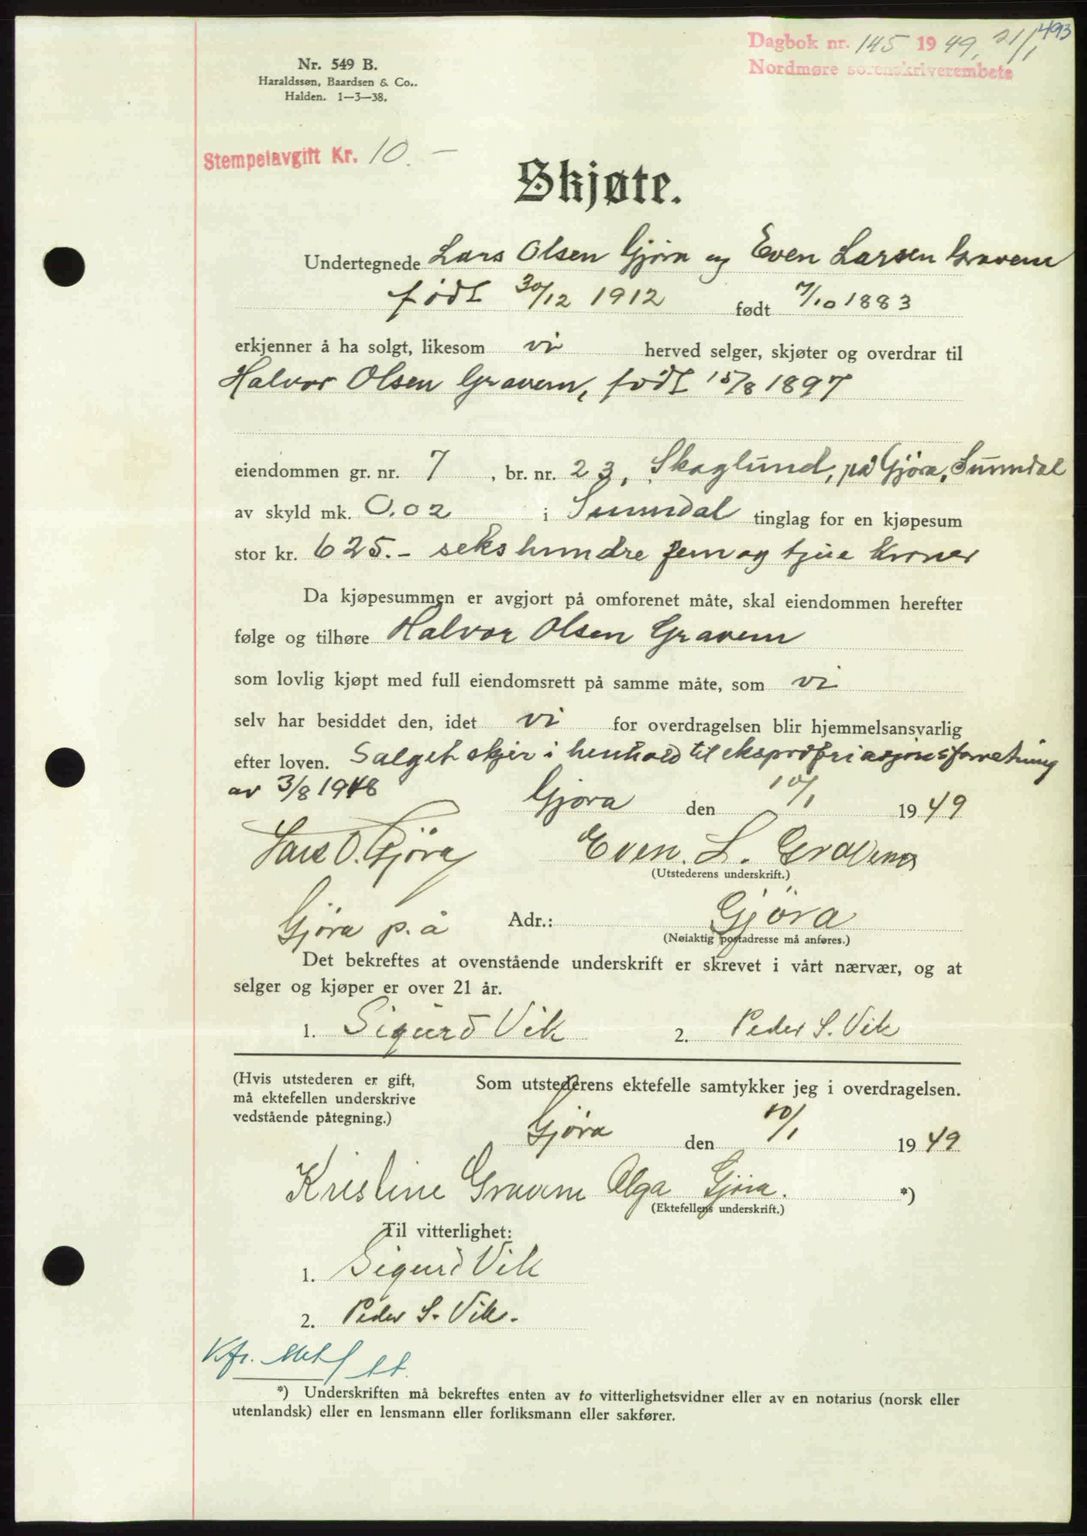 493
Dagbok nr. 145 1949, 21/1
Nordmøre sorenskriverembete
Nr. 549 B.
Haraldssøn, Baardsen & Co..
Halden. 1—3—38.
Stempelavgift Kr. 10.-
Skjøte.
Undertegnede Lars Olsen Gjøra og Even Larsen Gravem
født 30/12 1912 født 7/10 1883
erkjenner å ha solgt, likesom vi herved selger, skjøter og overdrar til
Halvor Olsen Gravem, født 15/8 1897
eiendommen gr. nr. 7, br. nr. 23, Skoglund, på Gjøra, Sunndal
av skyld mk. 0.02 i Sunndal tinglag for en kjøpesum
stor kr. 625.- seks hundre fem og tjue kroner
Da kjøpesummen er avgjort på omforenet måte, skal eiendommen herefter
følge og tilhøre Halvor Olsen Gravem
som lovlig kjøpt med full eiendomsrett på samme måte, som vi
selv har besiddet den, idet vi for overdragelsen blir hjemmelsansvarlig
efter loven. Salget skjer i henhold til ekspropriasjonsforretning
av 3/8 1948 Gjøra den 10/1 1949
Lars O. Gjøra Even. L. Gravem
(Utstederens underskrift.)
Gjøra p. å Adr.: Gjöra
(Nøiaktig postadresse må anføres.)
Det bekreftes at ovenstående underskrift er skrevet i vårt nærvær, og at
selger og kjøper er over 21 år.
1. Sigurd Vik 2. Peder S. Vik
(Hvis utstederen er gift,
må ektefellen underskrive
vedstående påtegning.)
Som utstederens ektefelle samtykker jeg i overdragelsen.
Gjøra den 10/1 1949
Kristine Gravem Olga Gjøra. *)
(Ektefellens underskrift.)
Til vitterlighet:
1. Sigurd Vik
2. Peder S. Vik.
Kfr.
*) Underskriften må bekreftes enten av to vitterlighetsvidner eller av en notarius (norsk eller
utenlandsk) eller en lensmann eller forliksmann eller sakfører.